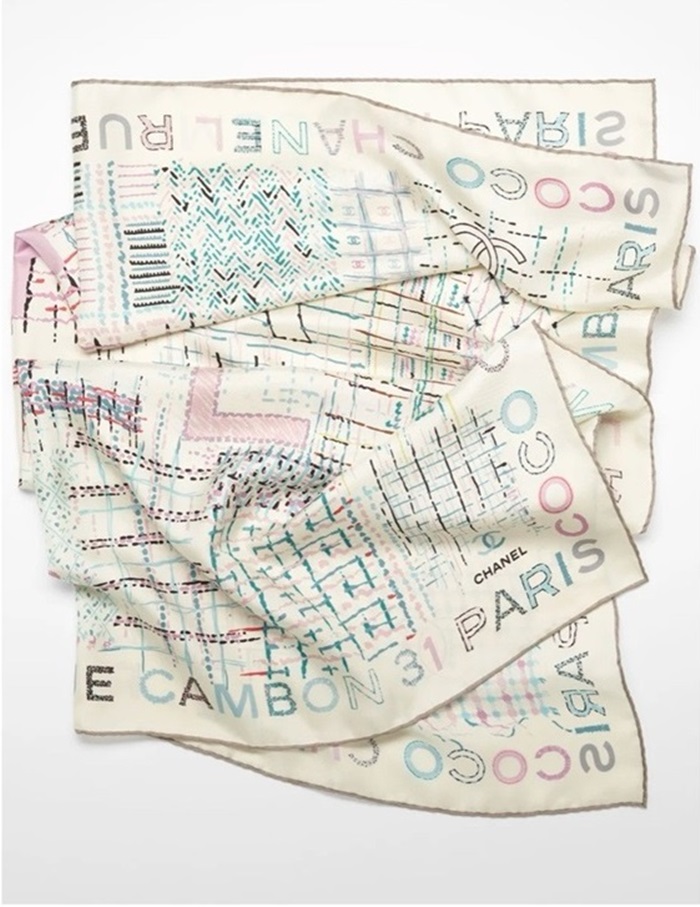 CHANEL RUE
PARIS
COCO
PARIS
MB
COCO
CHANEL
PARIS
E CAMBON 31
COCO
PARIS